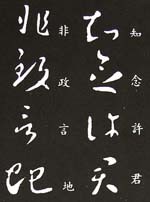 知念許君
非政言地